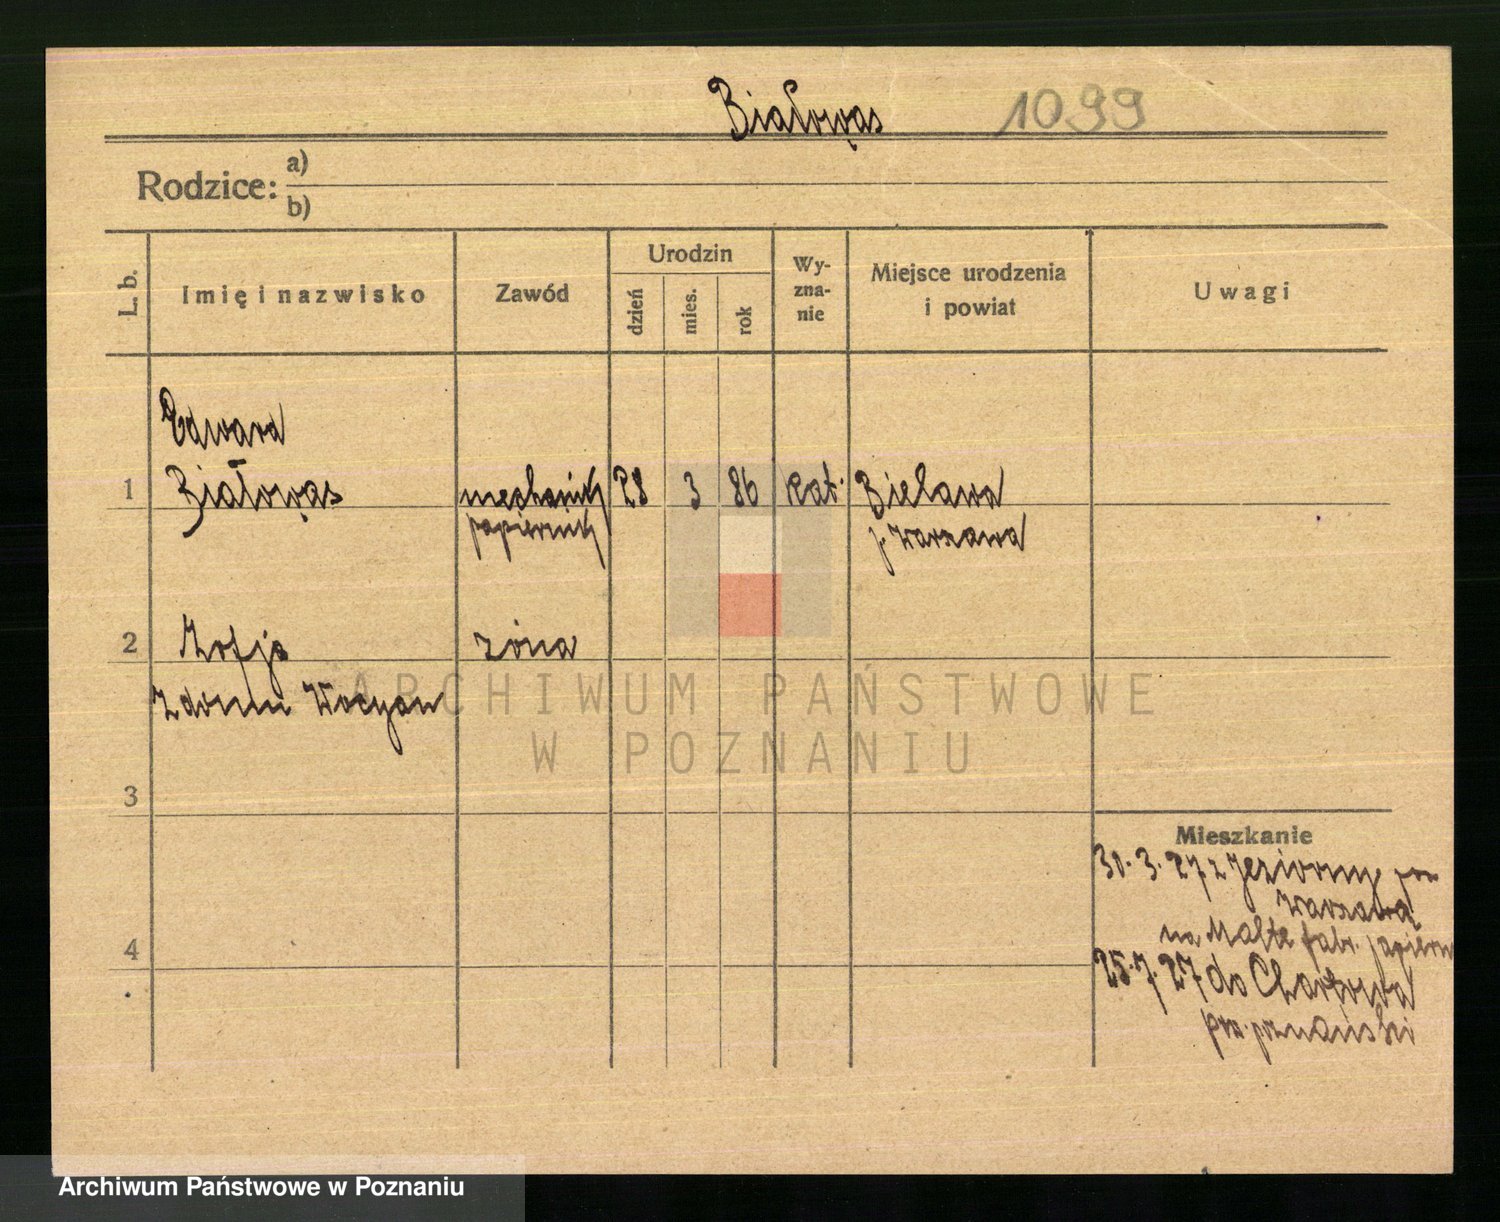 Białowąs 1099
Rodzice: a)
b)
L. b.
Imię i nazwisko
Zawód
Urodzin
dzień
mies.
rok
Wy-
zna-
nie
Miejsce urodzenia
i powiat
Uwagi
Edward
1 Białowąs mechanik 28 3 86 kat. Bielawa
papiernik p Warszawa
2 Zofja żona
z domu
3
Mieszkanie
30. 3. 27 z Jeziorny pow
Warszawa
na Malte fabr. papieru
4
25. 7. 27 do Chartowa
pow. poznański
ARCHIWUM PAŃSTWOWE
W POZNANIU
Archiwum Państwowe w Poznaniu